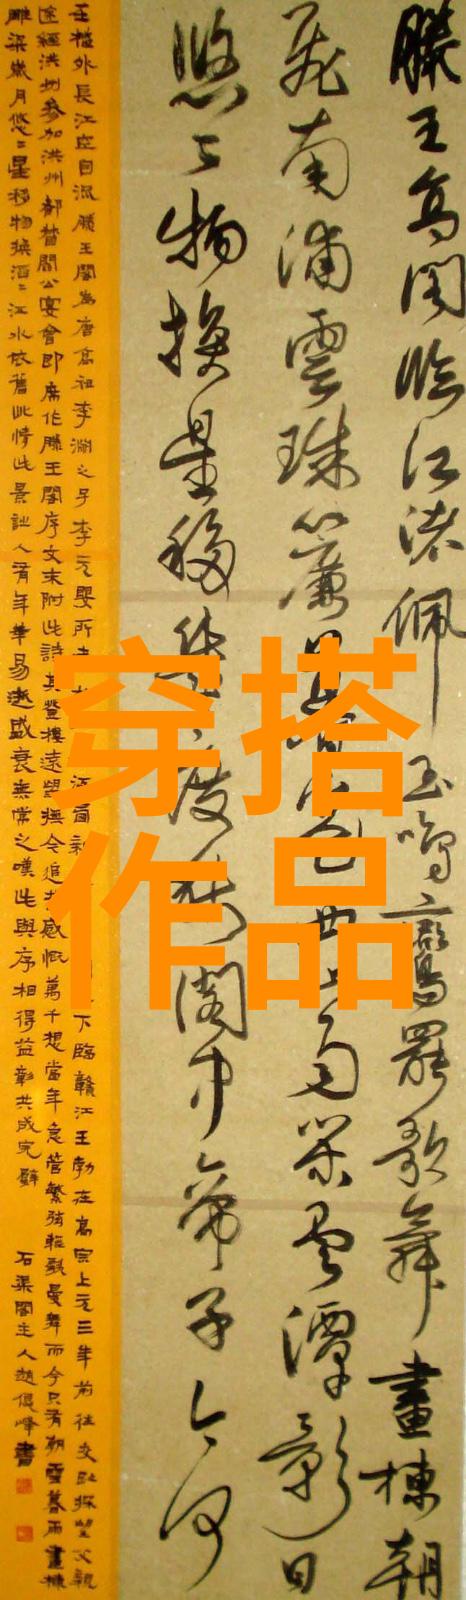 滕王高閣臨江渚佩玉鳴鸞罷歌舞畫棟朝
飛南浦雲珠簾暮捲西山雨閒雲潭影日
悠々物換星移幾度秋閣中帝子今何
在檻外長江空自流滕王閣為唐高祖李淵之子李元嬰所下臨贛江王勃在高宗上元三年前往交趾探望父親
途經洪州參加洪州都督閻公宴會即席作滕王閣序文末附此詩其登樓遠望撫今追昔感慨萬千想當年急管繁弦輕歌曼舞而今只有朝雲暮雨畫棟
雕梁歲月悠々星移物換江水依舊此情此景人有年華易逝盛衰無常之嘆此與序相得益彰共成完璧
石渠閣主人趙俊峰書
穿搭
作品